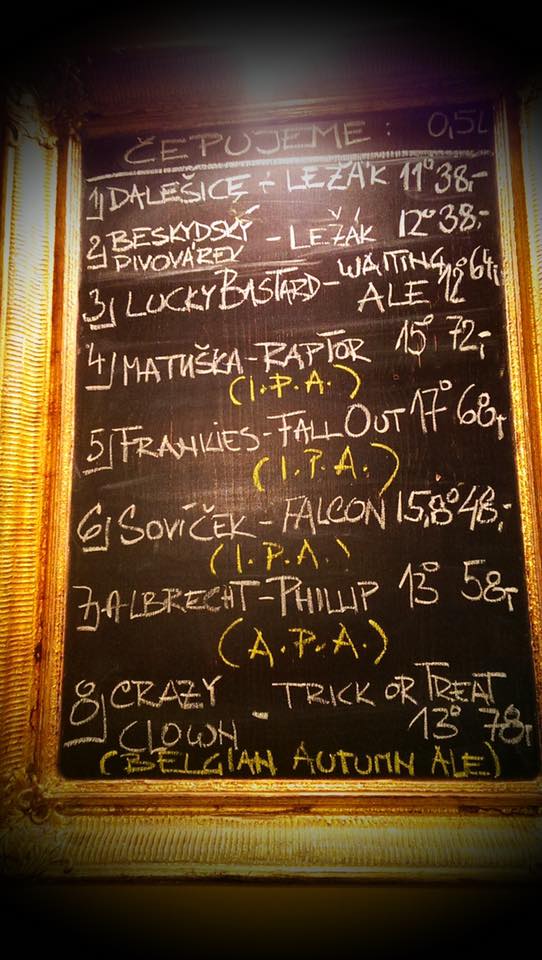 ČEPUJEME: 0,5L
1) DALEŠICE - LEŽÁK 11° 38,-
2) BESKYDSKÝ
PIVOVÁREK - LEŽÁK 12° 38,-
3) LUCKY BASTARD - WAITING
ALE 12° 64,-
4) MATUŠKA - RAPTOR 15° 72,-
(I.P.A.)
5) FRANKIES - FALLOUT 17° 68,-
(I.P.A.)
6) SOVÍČEK - FALCON 15,8° 48,-
(I.P.A.)
7) ALBRECHT - PHILLIP 13° 58,-
(A.P.A.)
8) CRAZY - TRICK OR TREAT
CLOWN 13° 78,-
(BELGIAN AUTUMN ALE)